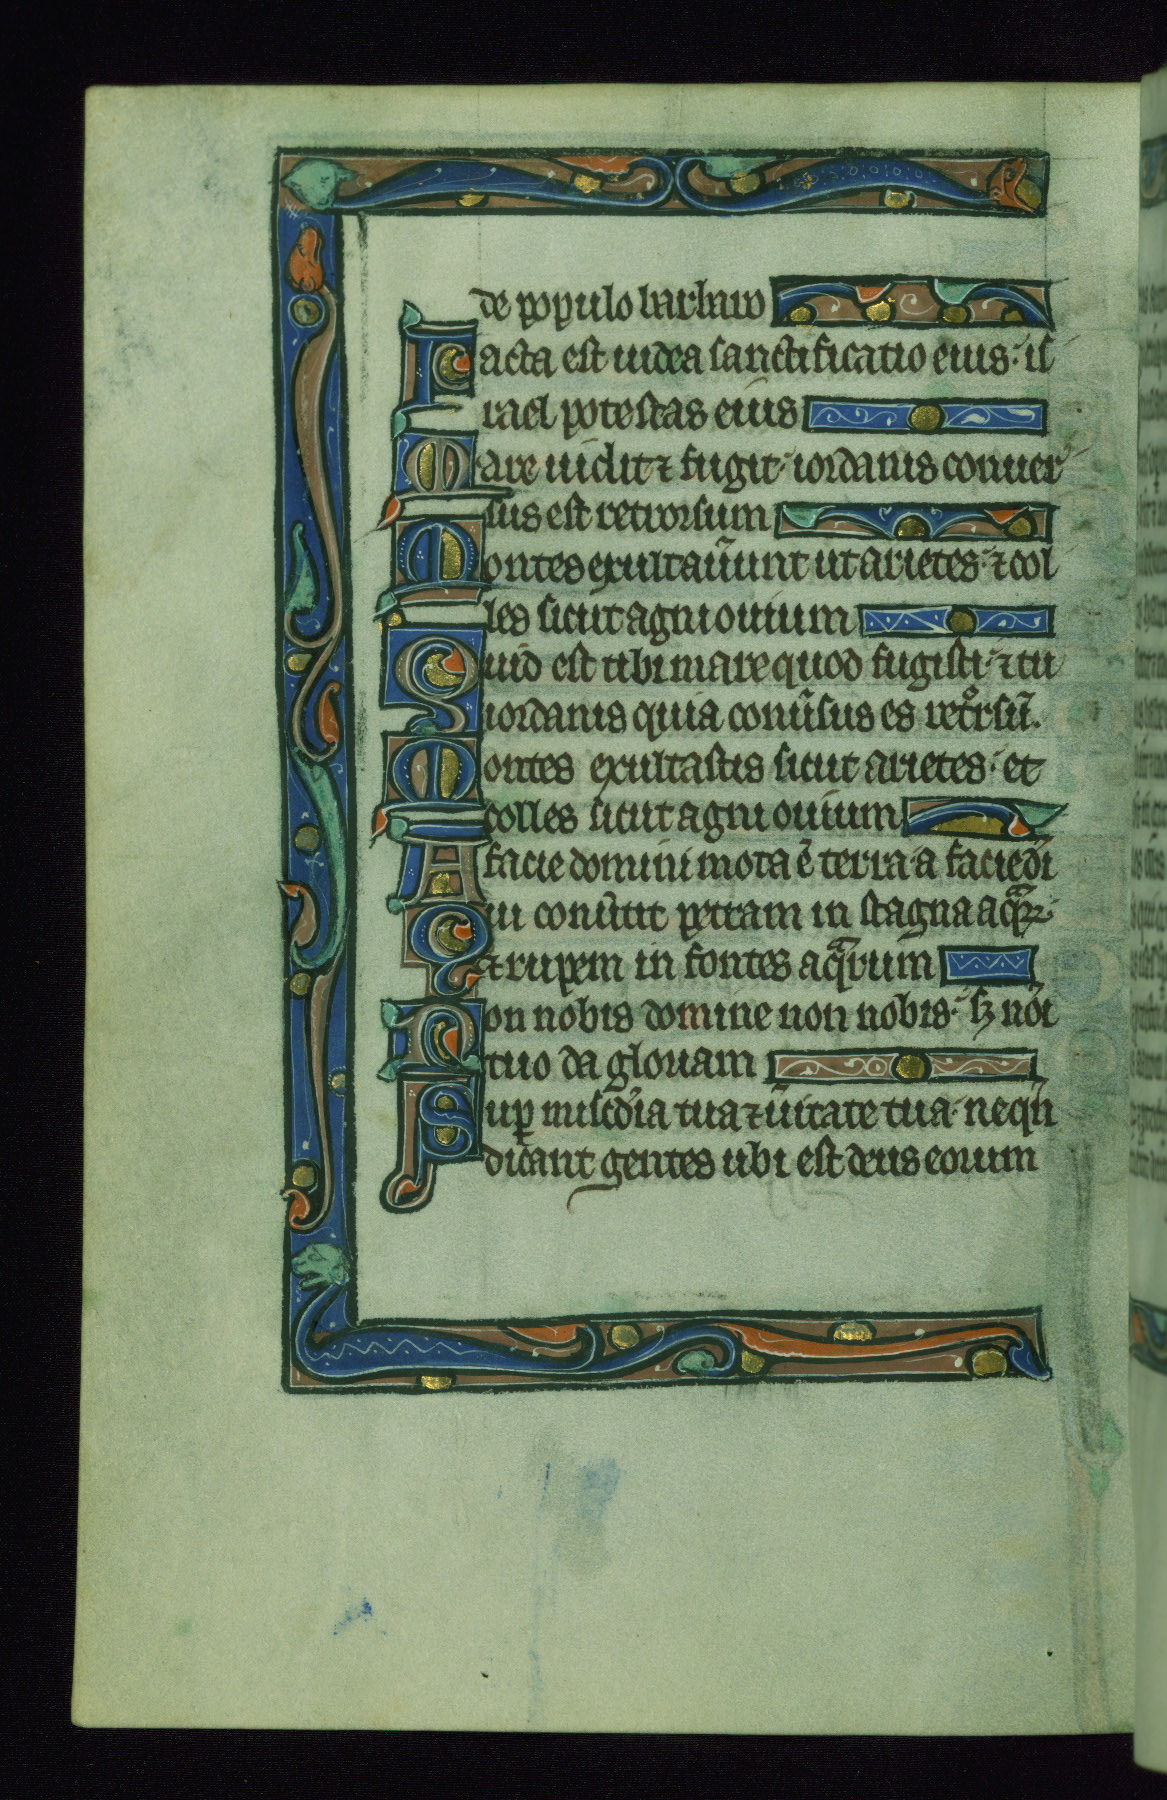 de populo barbaro
Facta est iudea sanctificatio eius· is
rael potestas eius
Mare uidit ⁊ fugit· iordanis conuer
sus est retrorsum
Montes exultaũunt ut arietes· ⁊ col
les sicut agni ouium
Quid est tibi mare quod fugisti· ⁊ tu
iordanis quia conũsus es ret͛rsũ.
Montes exultastis sicut arietes· et
colles sicut agni ouium
A facie domini mota ē terra· a facie dñi
Qui conũtit petram in stagna aqͣꝝ·
⁊ rupem in fontes aqͣrum
Non nobis domine non nobis· sꝫ nōi
tuo da gloriam
Suꝑ miscd̓ia tua ⁊ ũitate tua· neqñ
dicant gentes ubi est deus eorum